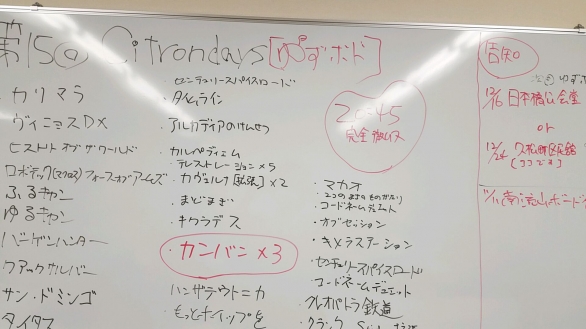 第15回 Citrondays [ゆずボド]
・カリマラ
・ヴィニョスDX
・ヒストリー オブ ザ ワールド
・ロボテック(マクロス)フォースオブアームズ
・ふるキャン
・ゆるキャン
・バーゲンハンター
・クアックサルバー
・サン・ドミンゴ
・タイタス
・センチュリースパイスロード
・タイムライン
・アルカディアのけんせつ
・カルペディエム
・テレストレーション×5
・カヴェルナ[拡張]×2
・まどまぎ
・キクラデス
・カンバン×3
・ハンザテウトニカ
・もっとホイップを
20:45
完全撤収
・マカオ
・2つの まちの ものがたり
・コードネームデュエット
・オブセッション
・キメラステーション
・センチュリースパイスロード
・コードネームデュエット
・クレオパトラ鉄道
・クランク
告知
12/16 日本橋公会堂
or
12/24 久松町区民館
(ココです)
南流山ボード